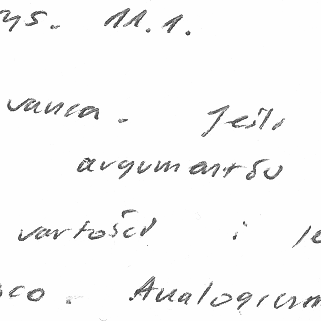 rys. 11.1.
vania. Jeśli
argumentów
wartości i je
sco. Analogiczn